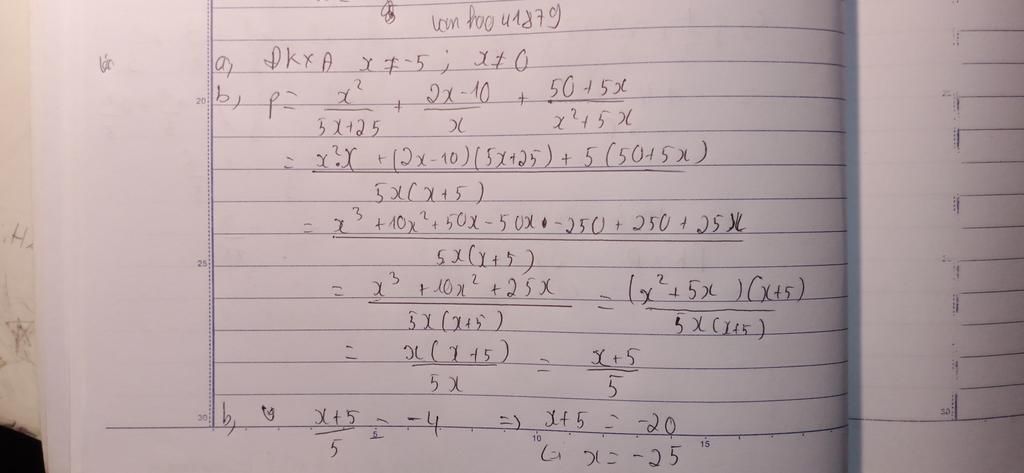 vanhao41879
a, ĐKXĐ x ≠ -5 ; x ≠ 0
b, P = x²/(5x+25) + (2x-10)/x + (50+5x)/(x²+5x)
= (x².x + (2x-10)(5x+25) + 5(50+5x))/(5x(x+5))
= (x³ + 10x² + 50x - 50x - 250 + 250 + 25x)/(5x(x+5))
= (x³ + 10x² + 25x)/(5x(x+5)) = ((x² + 5x)(x+5))/(5x(x+5))
= x(x+5)/5x = (x+5)/5
b, (x+5)/5 = -4 => x+5 = -20
⇔ x = -25
20
25
30
5
10
15
30